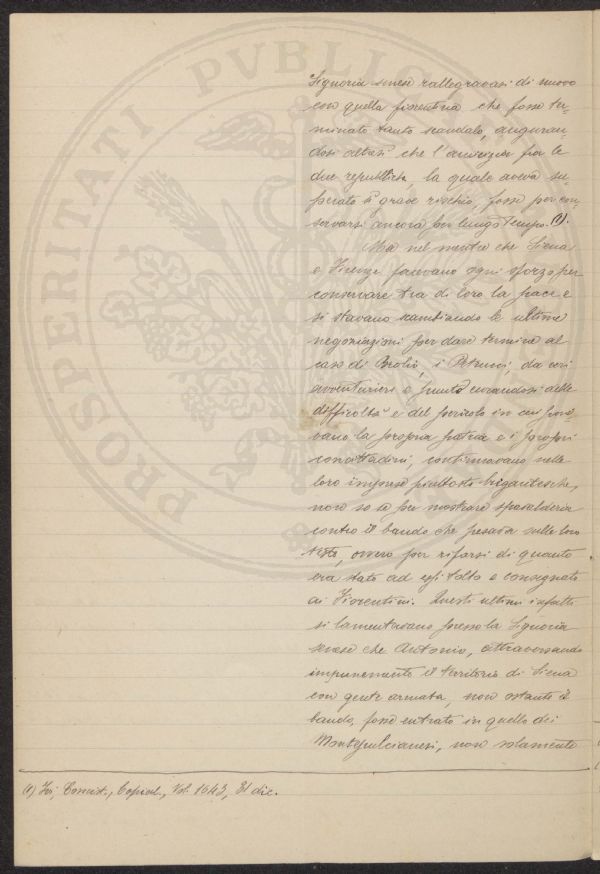 Signoria senese rallegravasi di nuovo
con quella fiorentina che fosse ter-
minato tanto scandalo, auguran-
dosi altresì che l'amicizia fra le
due repubbliche, la quale aveva su-
perato sì grave rischio, fosse per con-
servarsi ancora per lungo tempo. (1).
Ma nel mentre che Siena
e Firenze facevano ogni sforzo per
conservare tra di loro la pace e
si stavano scambiando le ultime
negoziazioni per dare termine al
caso di Brolio, i Petrucci, da veri
avventurieri e punto curandosi delle
difficoltà e del pericolo in cui pone-
vano la propria patria e i propri
concittadini, continuavano nelle
loro imprese piuttosto brigantesche,
non so se per mostrare spavalderia
contro il bando che pesava sulle loro
teste, ovvero per rifarsi di quanto
era stato ad essi tolto e consegnato
ai Fiorentini. Questi ultimi infatti
si lamentavano presso la Signoria
senese che Antonio, attraversando
impunemente il territorio di Siena
con gente armata, non ostante il
bando, fosse entrato in quello dei
Montepulcianesi, non solamente
(1) Ivi, Concist., Copial., Vol. 1643, 31 dic.
PROSPERITATI PVBLICAE